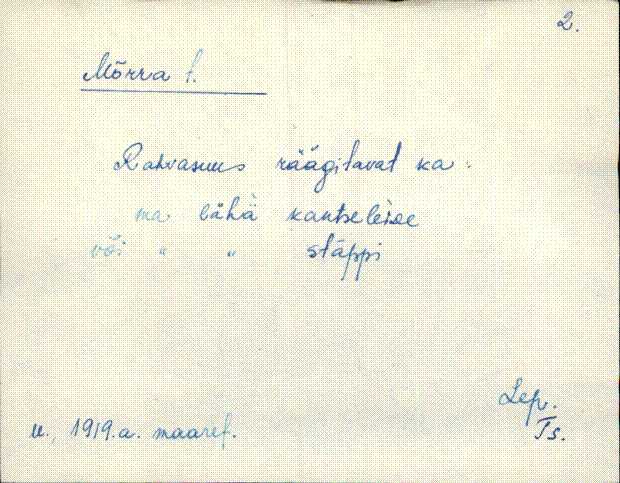 2.
Mõrra t.
Rahvasuus räägitavat ka.
ma lähä kantseleise
või " " stäppi
Lep.
u. 1919.a. maaref. Ts.